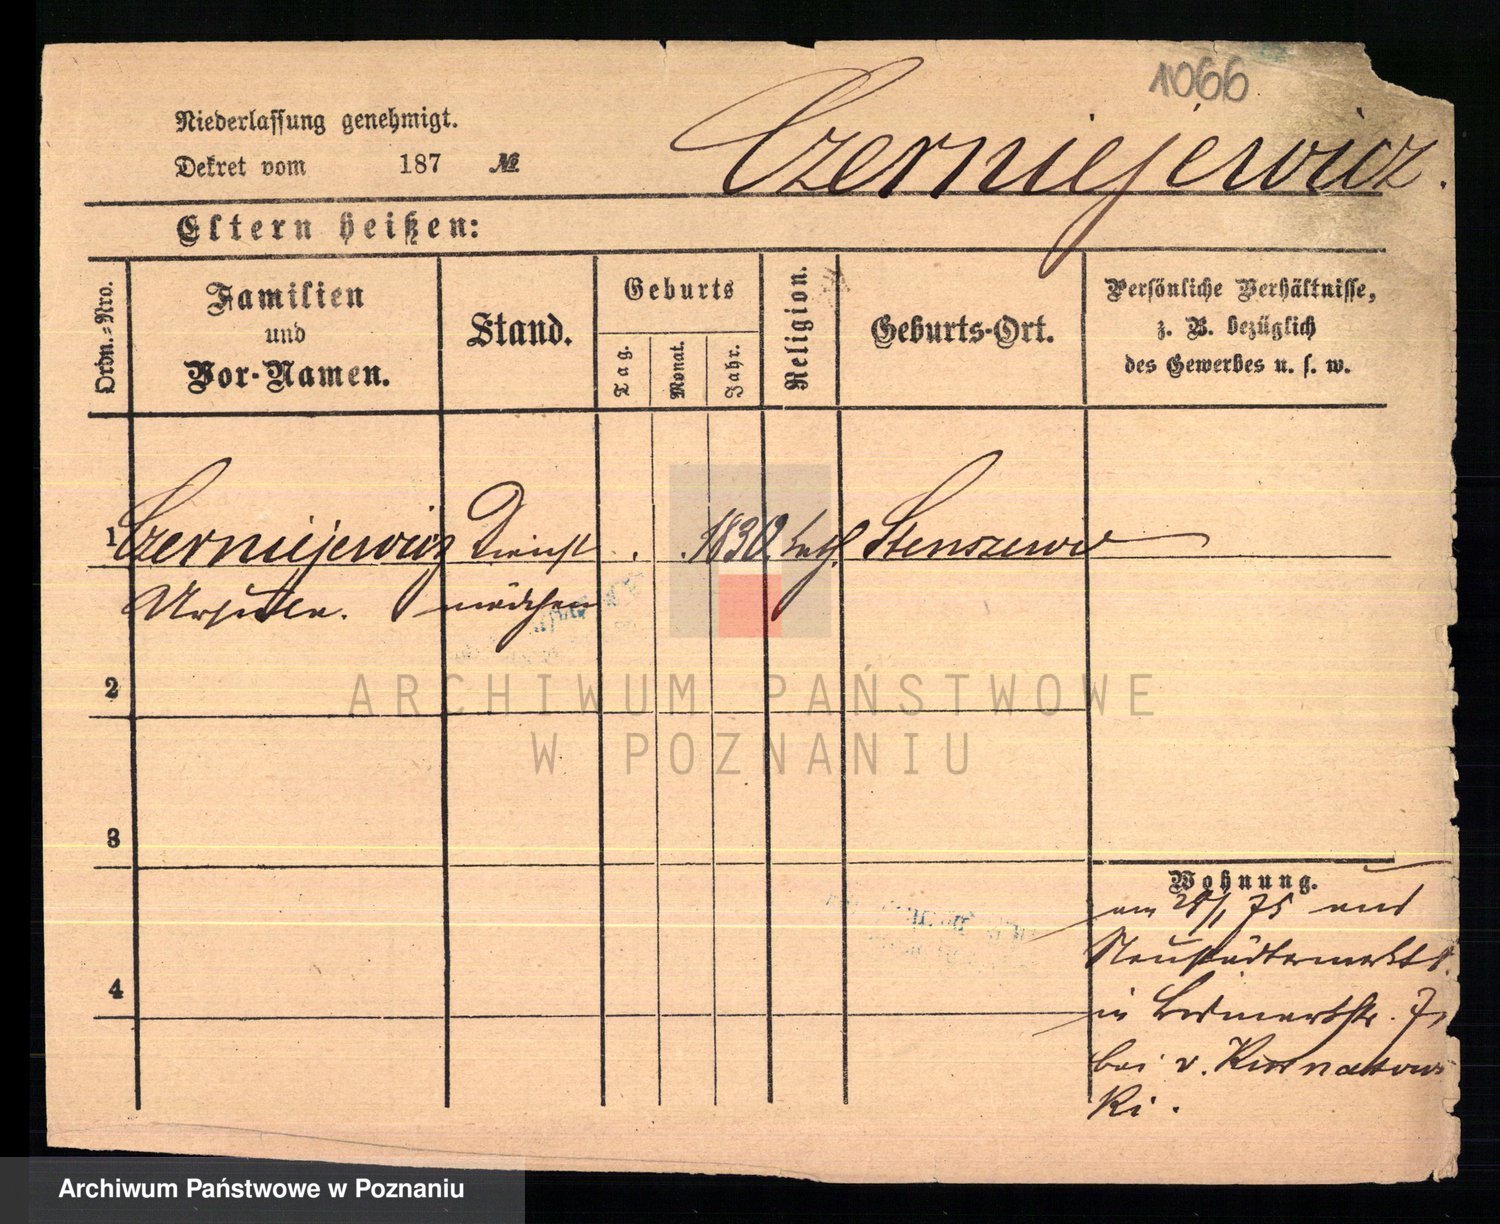 1066
Niederlassung genehmigt.
Dekret vom 187 №
Czerniejewicz.
Eltern heißen:
Ordn.=Nro.
Familien
und
Vor-Namen.
Stand.
Geburts
Tag.
Monat.
Jahr.
Religion.
Geburts-Ort.
Persönliche Verhältnisse,
z. B. bezüglich
des Gewerbes u. s. w.
1 Czerniejewicz Dienst . . 1830. kath. Stenszewo
Ursula. mädchen
2
3
4
Wohnung.
am 28/1 75 aus
Neustädtermarkt
in Bismarkstr. 7,
bei v. Kurnatows
ki.
ARCHIWUM PAŃSTWOWE
W POZNANIU
Archiwum Państwowe w Poznaniu